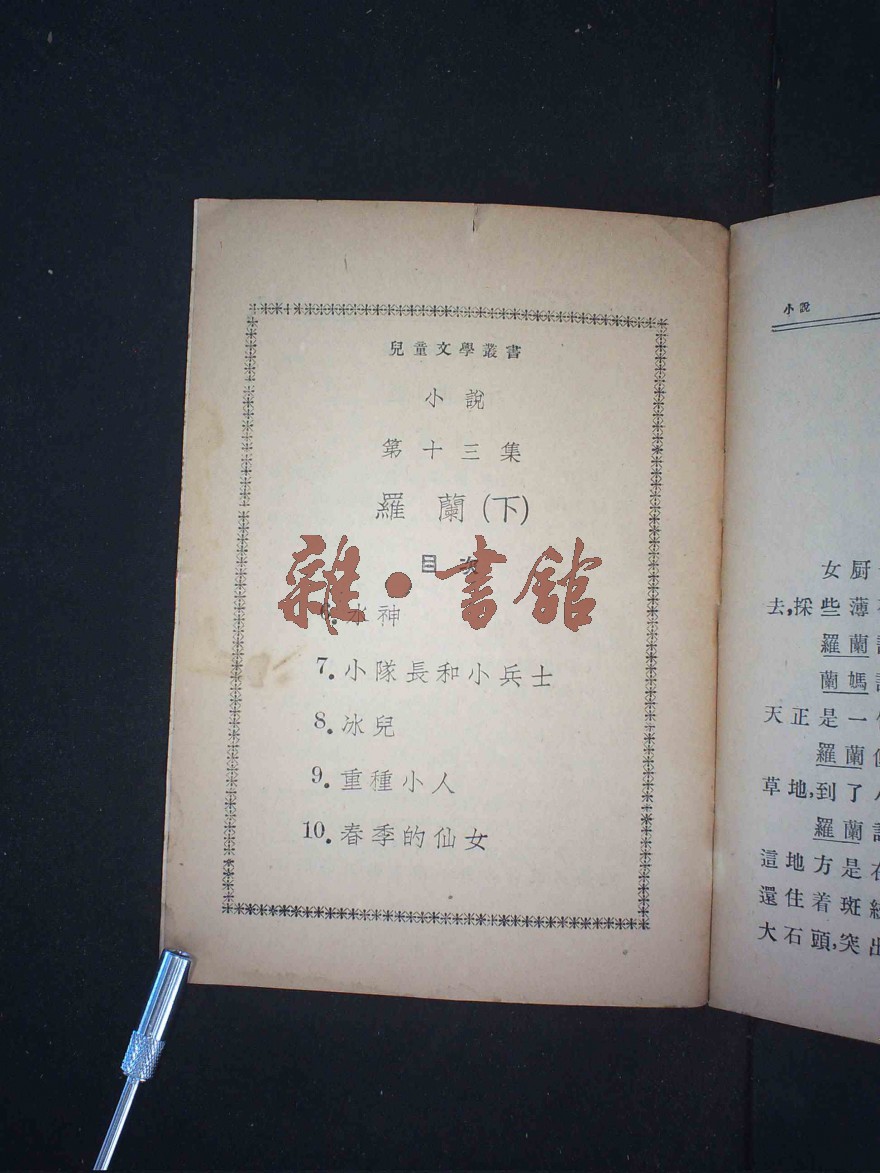 兒童文學叢書
小說
第十三集
羅蘭(下)
目次
雜·書館
6.水神
7.小隊長和小兵士
8.冰兒
9.重種小人
10.春季的仙女
小說
女厨
去,採些薄
羅蘭
蘭媽
天正是一
羅蘭
草地,到了
羅蘭
這地方是在
還住着斑
大石頭,突出